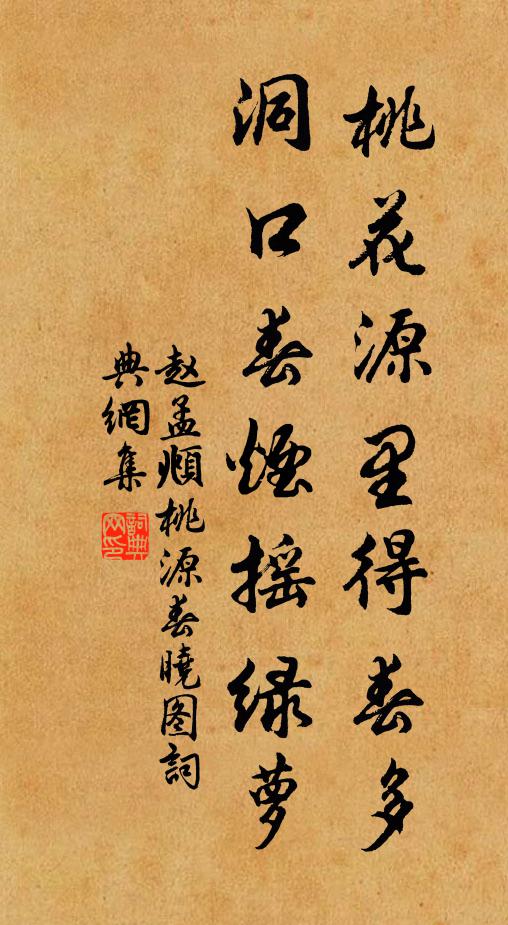 桃花源里得春多
洞口春煙摇绿萝
赵孟頫桃源春曉图詞
典網集
詞典
网印